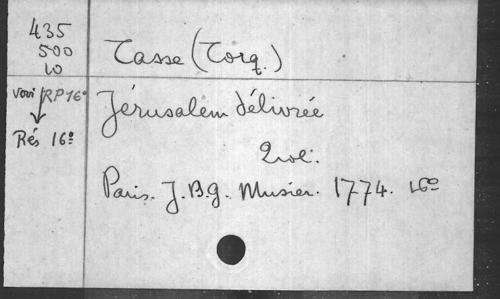 435
500
10
Tasse (Torq.)
voir RP 16°
Rés 16°
Jérusalem délivrée
2 vol.
Paris. J. B. G. Musier. 1774. 16°